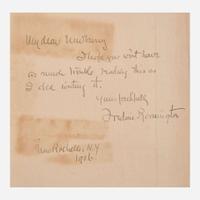 My dear
I hope you won't have
as much trouble reading this as
I did writing it.
Yours faithfully
Frederic Remington
New Rochelle, N.Y
1906